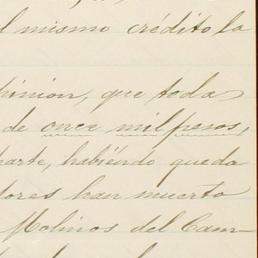 l mismo crédito la
pinion, que toda
de once mil pesos,
parte, habiendo queda
tores han muerto
Molinos del Cam-